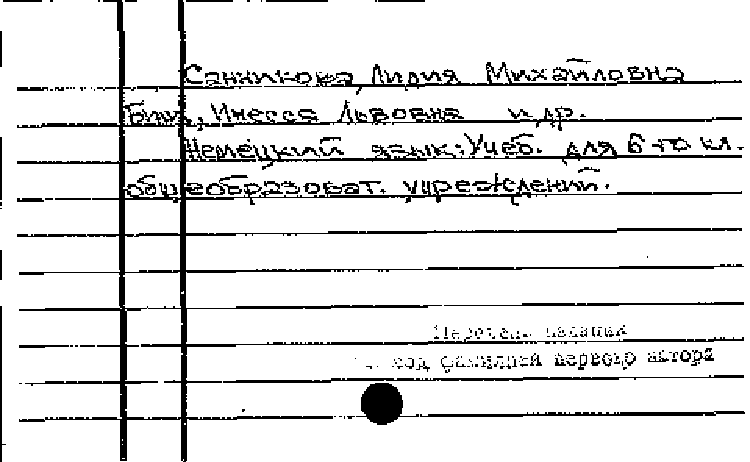 Санникова, Лидия Михайловна
Бим, Инесса Львовна и др.
Немецкий язык: Учеб. для 6-го кл.
общеобразоват. учреждений.
Перечень изданий
под фамилией первого автора